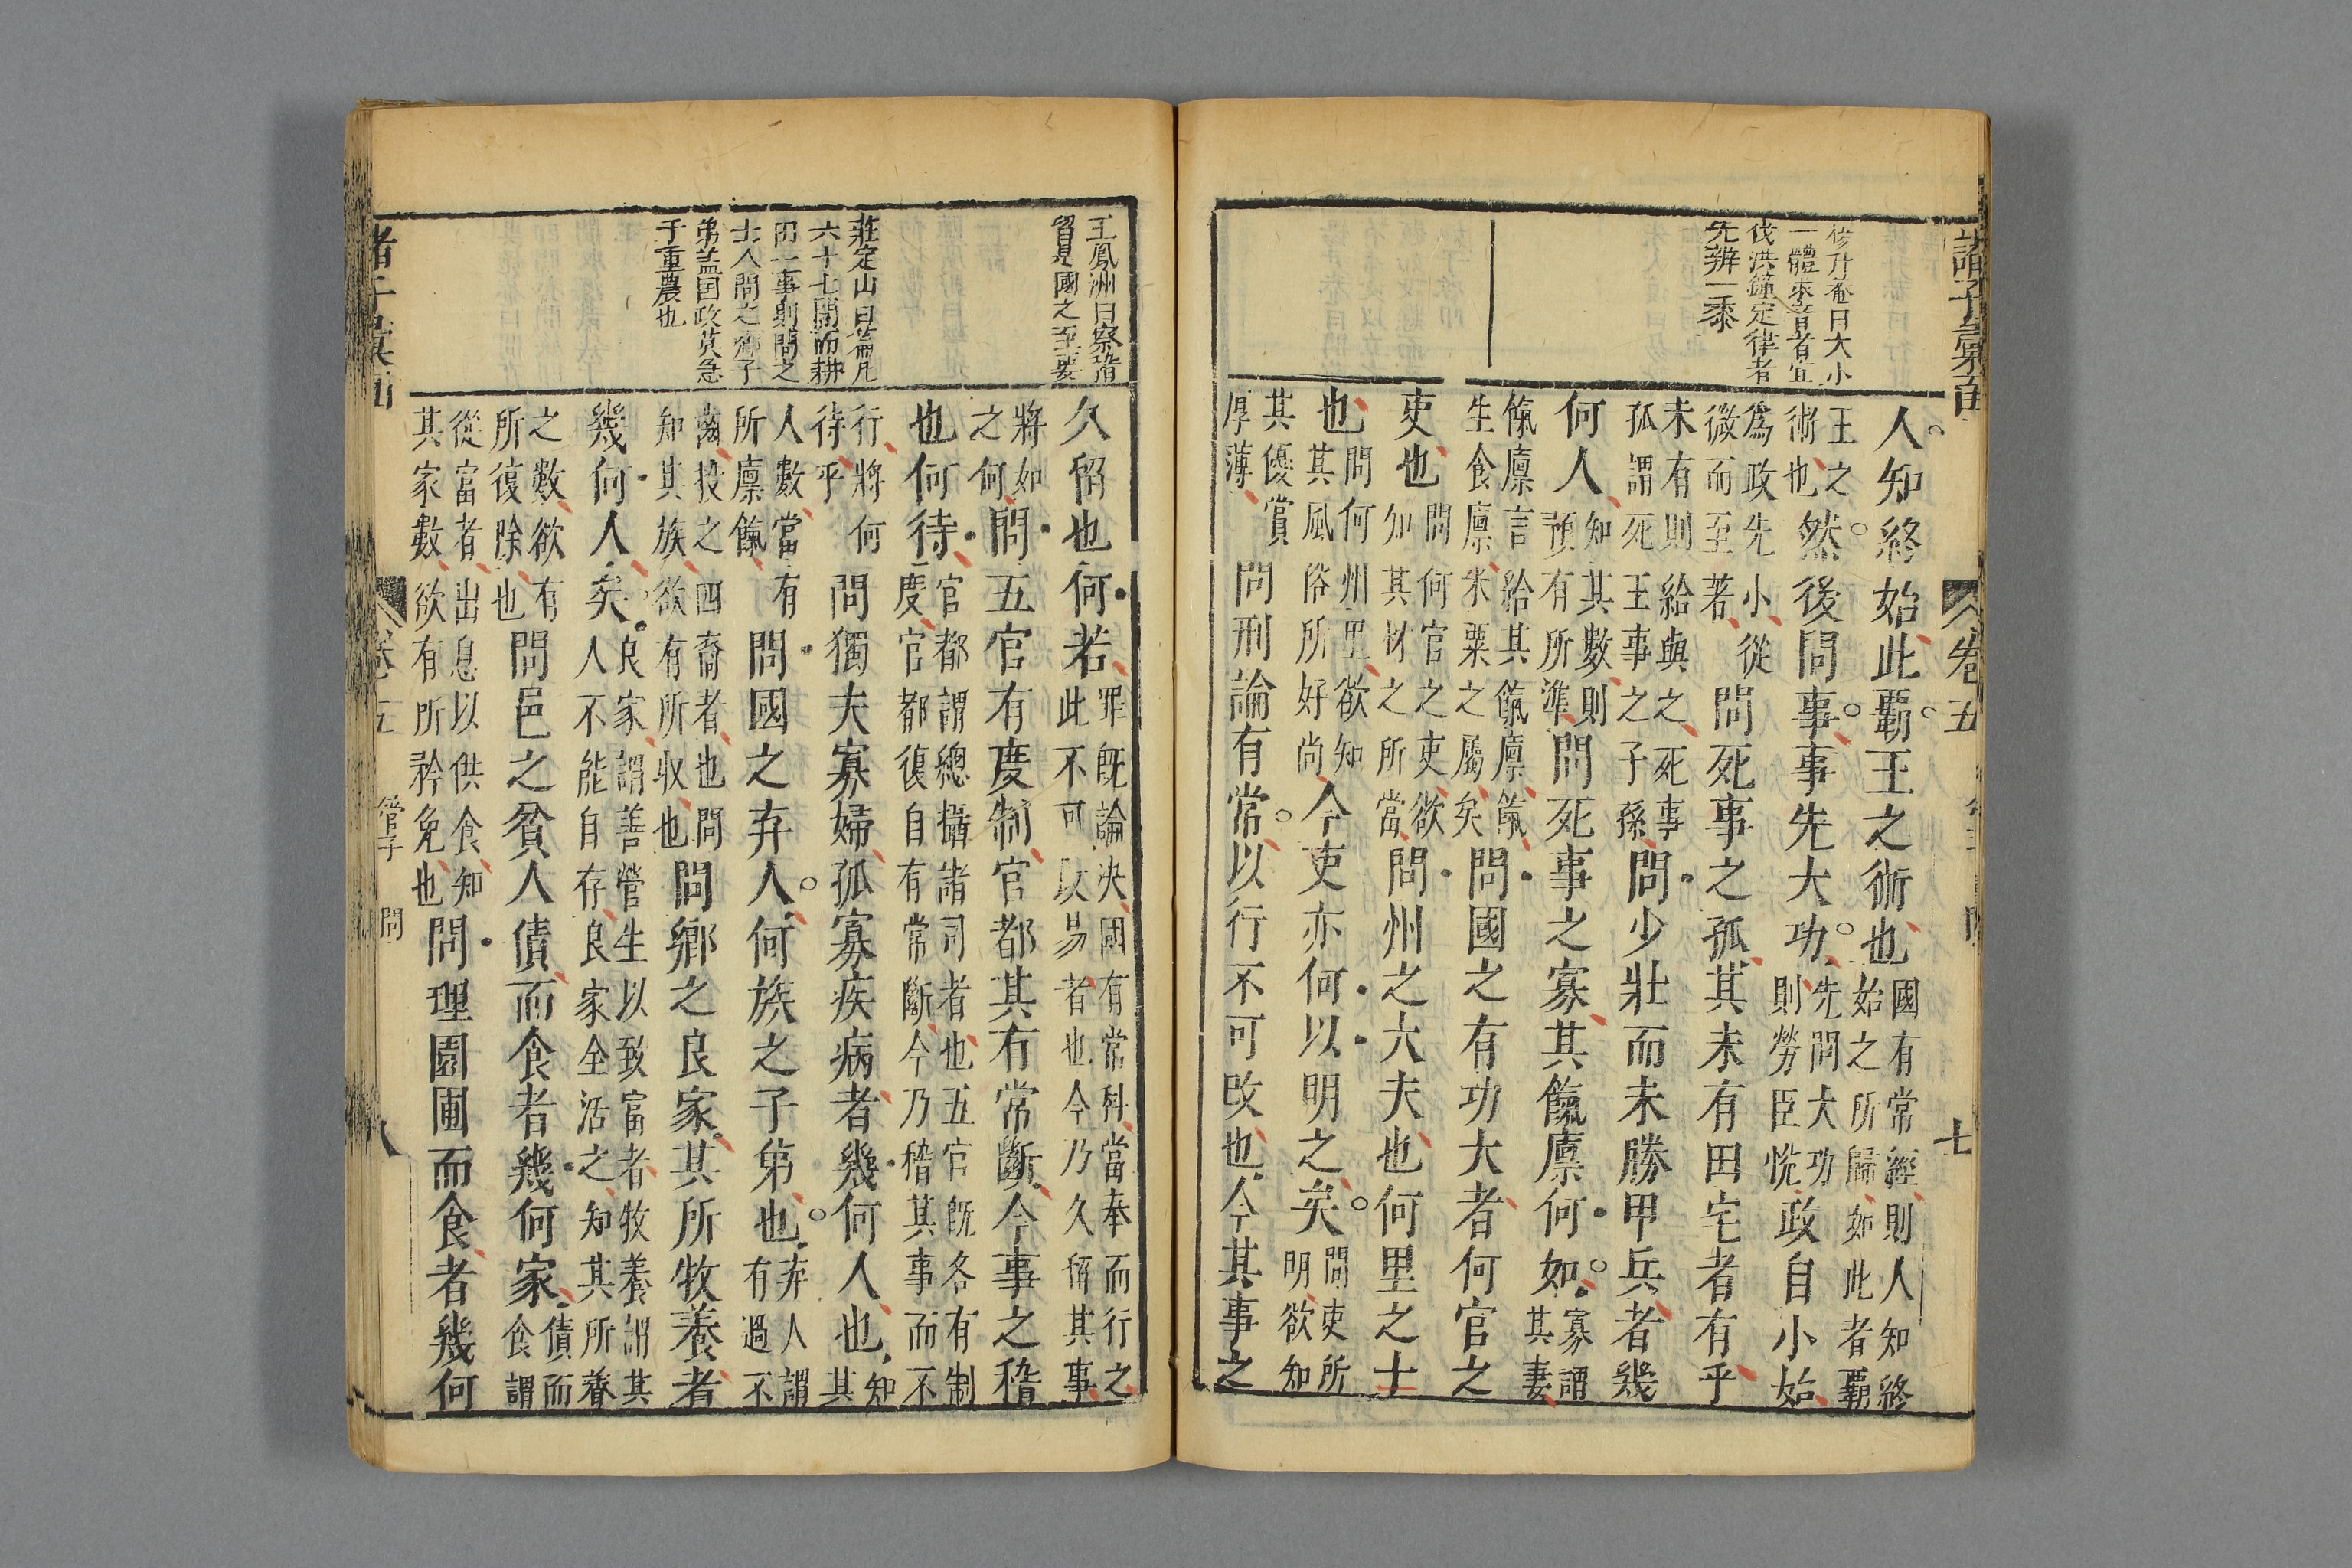 諸子彙函 卷五 七
升菴曰大小
一體來音者宜
伐洪鐘定律者
先辨一黍
人知終始此霸王之術也國有常經則人知終始之所歸如此者霸
王之術也然後問事事先大功先問大功則勞臣悅政自小始
爲政先小從微而至著問死事之孤其未有田宅者有乎
未有則給與之死事孤謂死王事之子孫問少壯而未勝甲兵者幾
何人知其數則預有所準問死事之寡其餼廩何如寡謂其妻
餼廩言給其餼廩餼生食廩米粟之屬矣問國之有功大者何官之
吏也問何官之吏欲知其材之所當問州之大夫也何里之士
也問何州里欲知其風俗所好尚今吏亦何以明之矣問吏所明欲知
其優賞厚薄問刑論有常以行不可改也今其事之
王鳳洲曰察稽
留是國之至要
莊定山曰篇凡
六十七問而耕
田一事則問之
士人問之鄉子
弟盖国政莫急
于重農也
久留也何若罪旣論決國有常科當奉而行之此不可改易者也今乃久留其事
將如之何問五官有度制官都其有常斷今事之稽
也何待官都謂總攝諸司者也五官旣各有制度官都復自有常斷今乃稽其事而不
行將何待乎問獨夫寡婦孤寡疾病者幾何人也知其
人數當有所廩餼問國之弃人何族之子弟也弃人謂有過不
齒投之四裔者也問知其族欲有所収也問鄉之良家其所牧養者
幾何人矣良家謂善營生以致富者牧養謂其人不能自存良家全活之知其所養
之數欲有所復除也問邑之貧人債而食者幾何家債而食謂
從富者出息以供食知其家數欲有所矜免也問理園圃而食者幾何
諸子彙函 卷五 管子 問 八